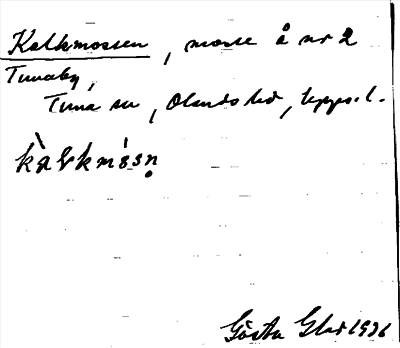 Kalkmossen, mosse å nr 2
Tunaby,
Tuna sn, Olands hd, Upps. l.
kàlkmósn̥
Gösta 1931